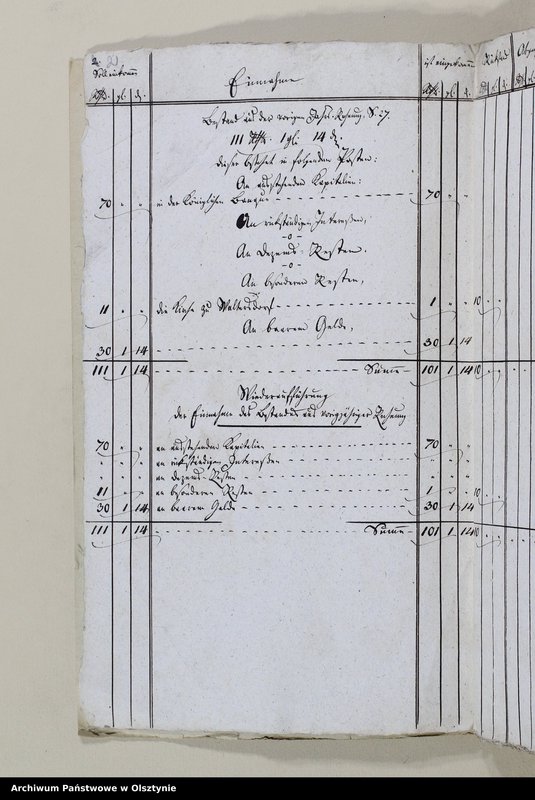 2.
Soll einkom̄en
Einnahme
ist eingekom̄en
Rthl. gl. d.
Rthl. gl. d.
Bestand aus der vorigen Jahr-Rechnung, S. 27.
111 Rthl. 1 gl. 14 d.
dieser bestehet in folgenden Posten:
An ausstehenden Kapitalien:
70 " " in der Königlichen Banque 70 " "
An rückständigen Interessen,
-o-
An Dezems-Resten.
-o-
An besonderen Resten,
11 " " die Kirche zu Waltersdorf 1 " " 10 " "
An baarem Gelde,
30 1 14 30 1 14
111 1 14 Summe 101 1 14 10
Wiederaufführung
der Einnahme des Bestandes aus vorigjähriger Rechnung
70 " " an ausstehenden Kapitalien 70 " "
" " " an rückständigen Interessen " " "
" " " an Dezems-Resten " " "
11 " " an besonderen Resten 1 " " 10 " "
30 1 14 an baarem Gelde 30 1 14
111 1 14 Summe 101 1 14 10
Archiwum Państwowe w Olsztynie